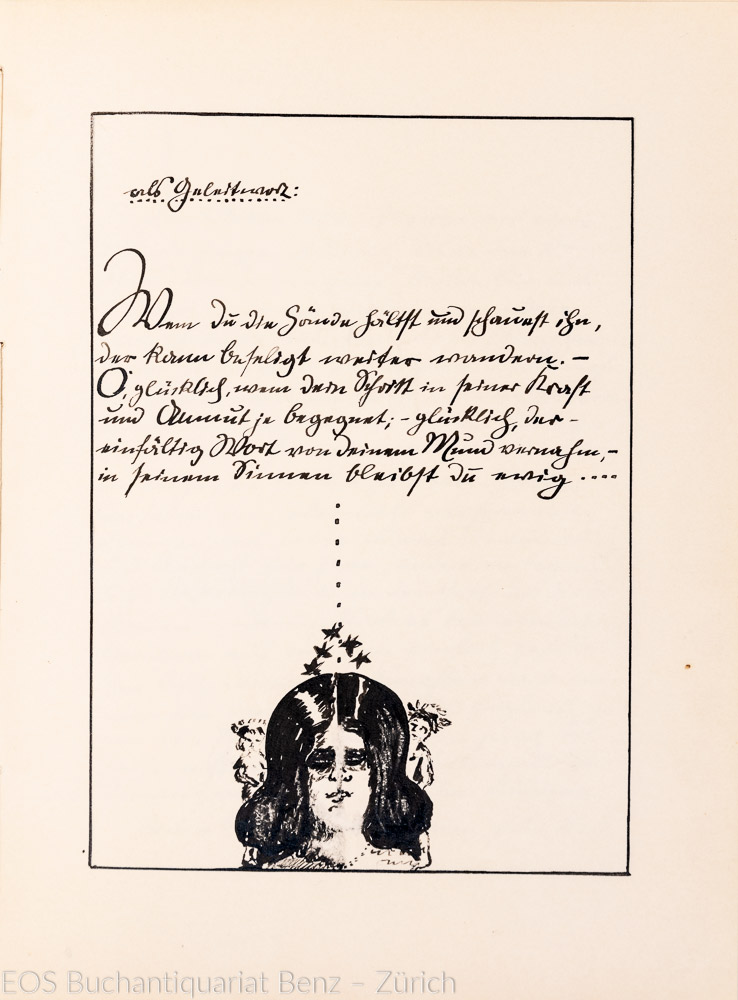 als Geleitwort:
Wem du die Hände hältst und schauest ihn,
der kann beseligt weiter wandern. –
O, glücklich, wem dein Schritt in seiner Kraft
und Anmut je begegnet; – glücklich, der –
einfältig Wort von deinem Mund vernahm, –
in seinem Sinnen bleibst du ewig ....
EOS Buchantiquariat Benz – Zürich